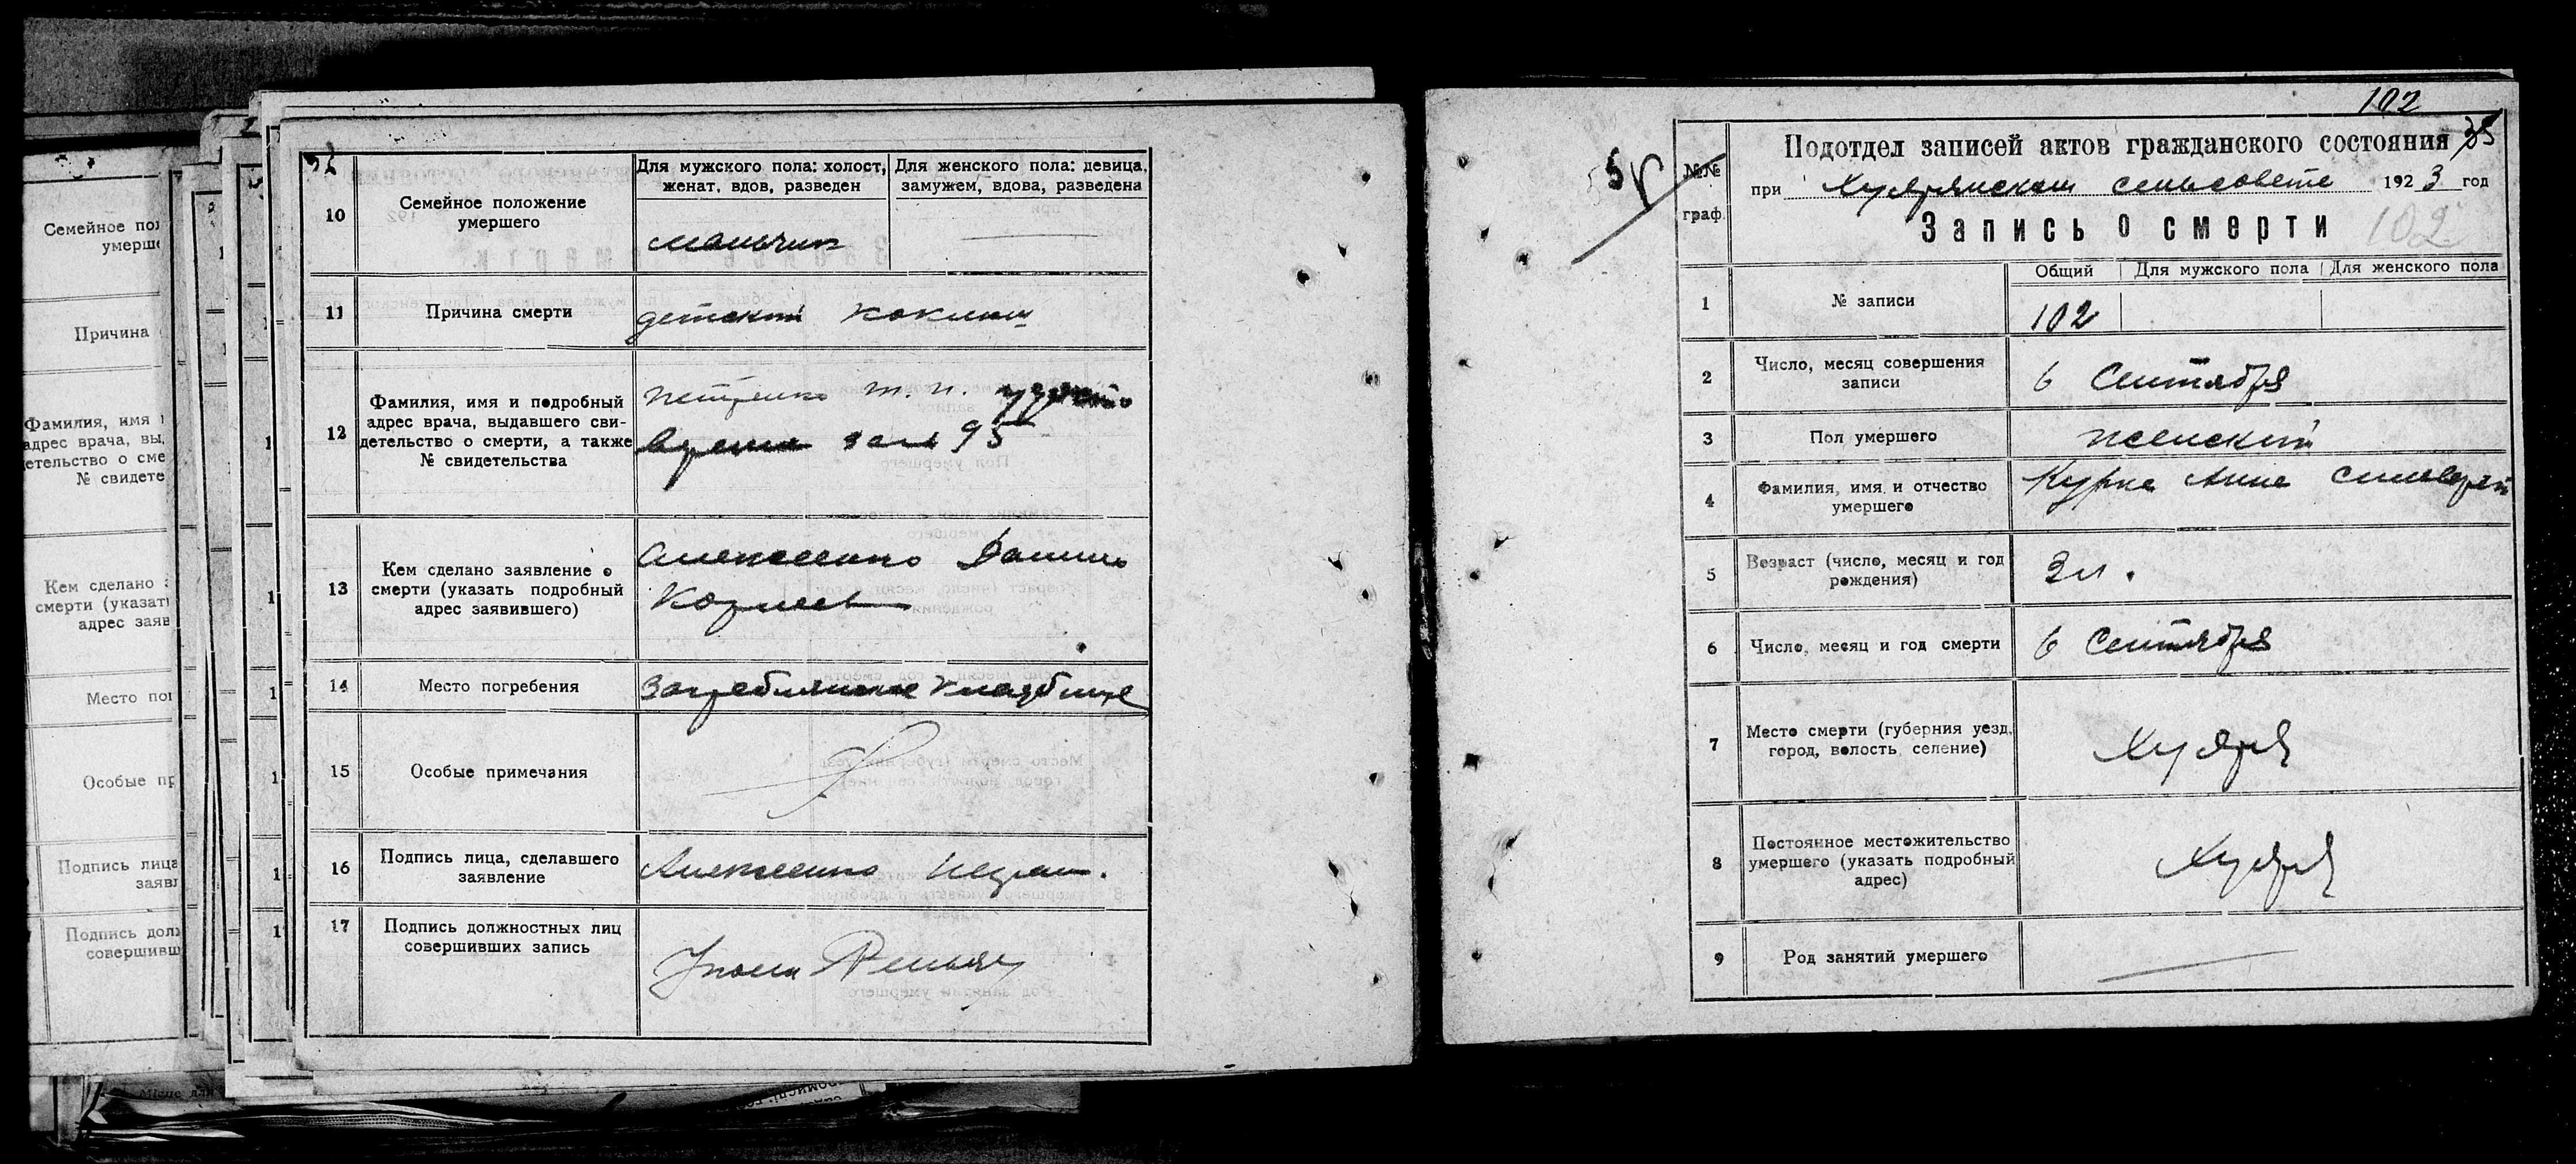 Семейное пол
умерше
Причина
Фамилия, имя
адрес врача, вы
етельство о сме
№ свидете
Кем сделано
смерти (указат
адрес заяв
Место по
Особые пр
Подпись лица
заявл
Подпись долж
совершивш
10
Семейное положение
умершего
Для мужского пола: холост,
женат, вдов, разведен
Для женского пола: девица,
замужем, вдова, разведена
мальчик
11
Причина смерти
детский коклюш
12
Фамилия, имя и подробный
адрес врача, выдавшего сви-
детельство о смерти, а также
№ свидетельства
Петренко
врача 95
13
Кем сделано заявление о
смерти (указать подробный
адрес заявившего)
Алексеенко Данило
Корнеев
14
Место погребения
Загреблянское кладбище
15
Особые примечания
16
Подпись лица, сделавшего
заявление
Алексеенко неграм.
17
Подпись должностных лиц
совершивших запись
102
35
5
№№
граф.
Подотдел записей актов гражданского состояния
при Худярянском сельсовете 1923 год
Запись о смерти 102
1
№ записи
Общий
Для мужского пола
Для женского пола
102
2
Число, месяц совершения
записи
6 Сентября
3
Пол умершего
женский
4
Фамилия, имя и отчество
умершего
Курка Анна
5
Возраст (число, месяц и год
рождения)
3 л.
6
Число, месяц и год смерти
6 Сентября
7
Место смерти (губерния уезд,
город, волость, селение)
Худяря
8
Постоянное местожительство
умершего (указать подробный
адрес)
Худяря
9
Род занятий умершего